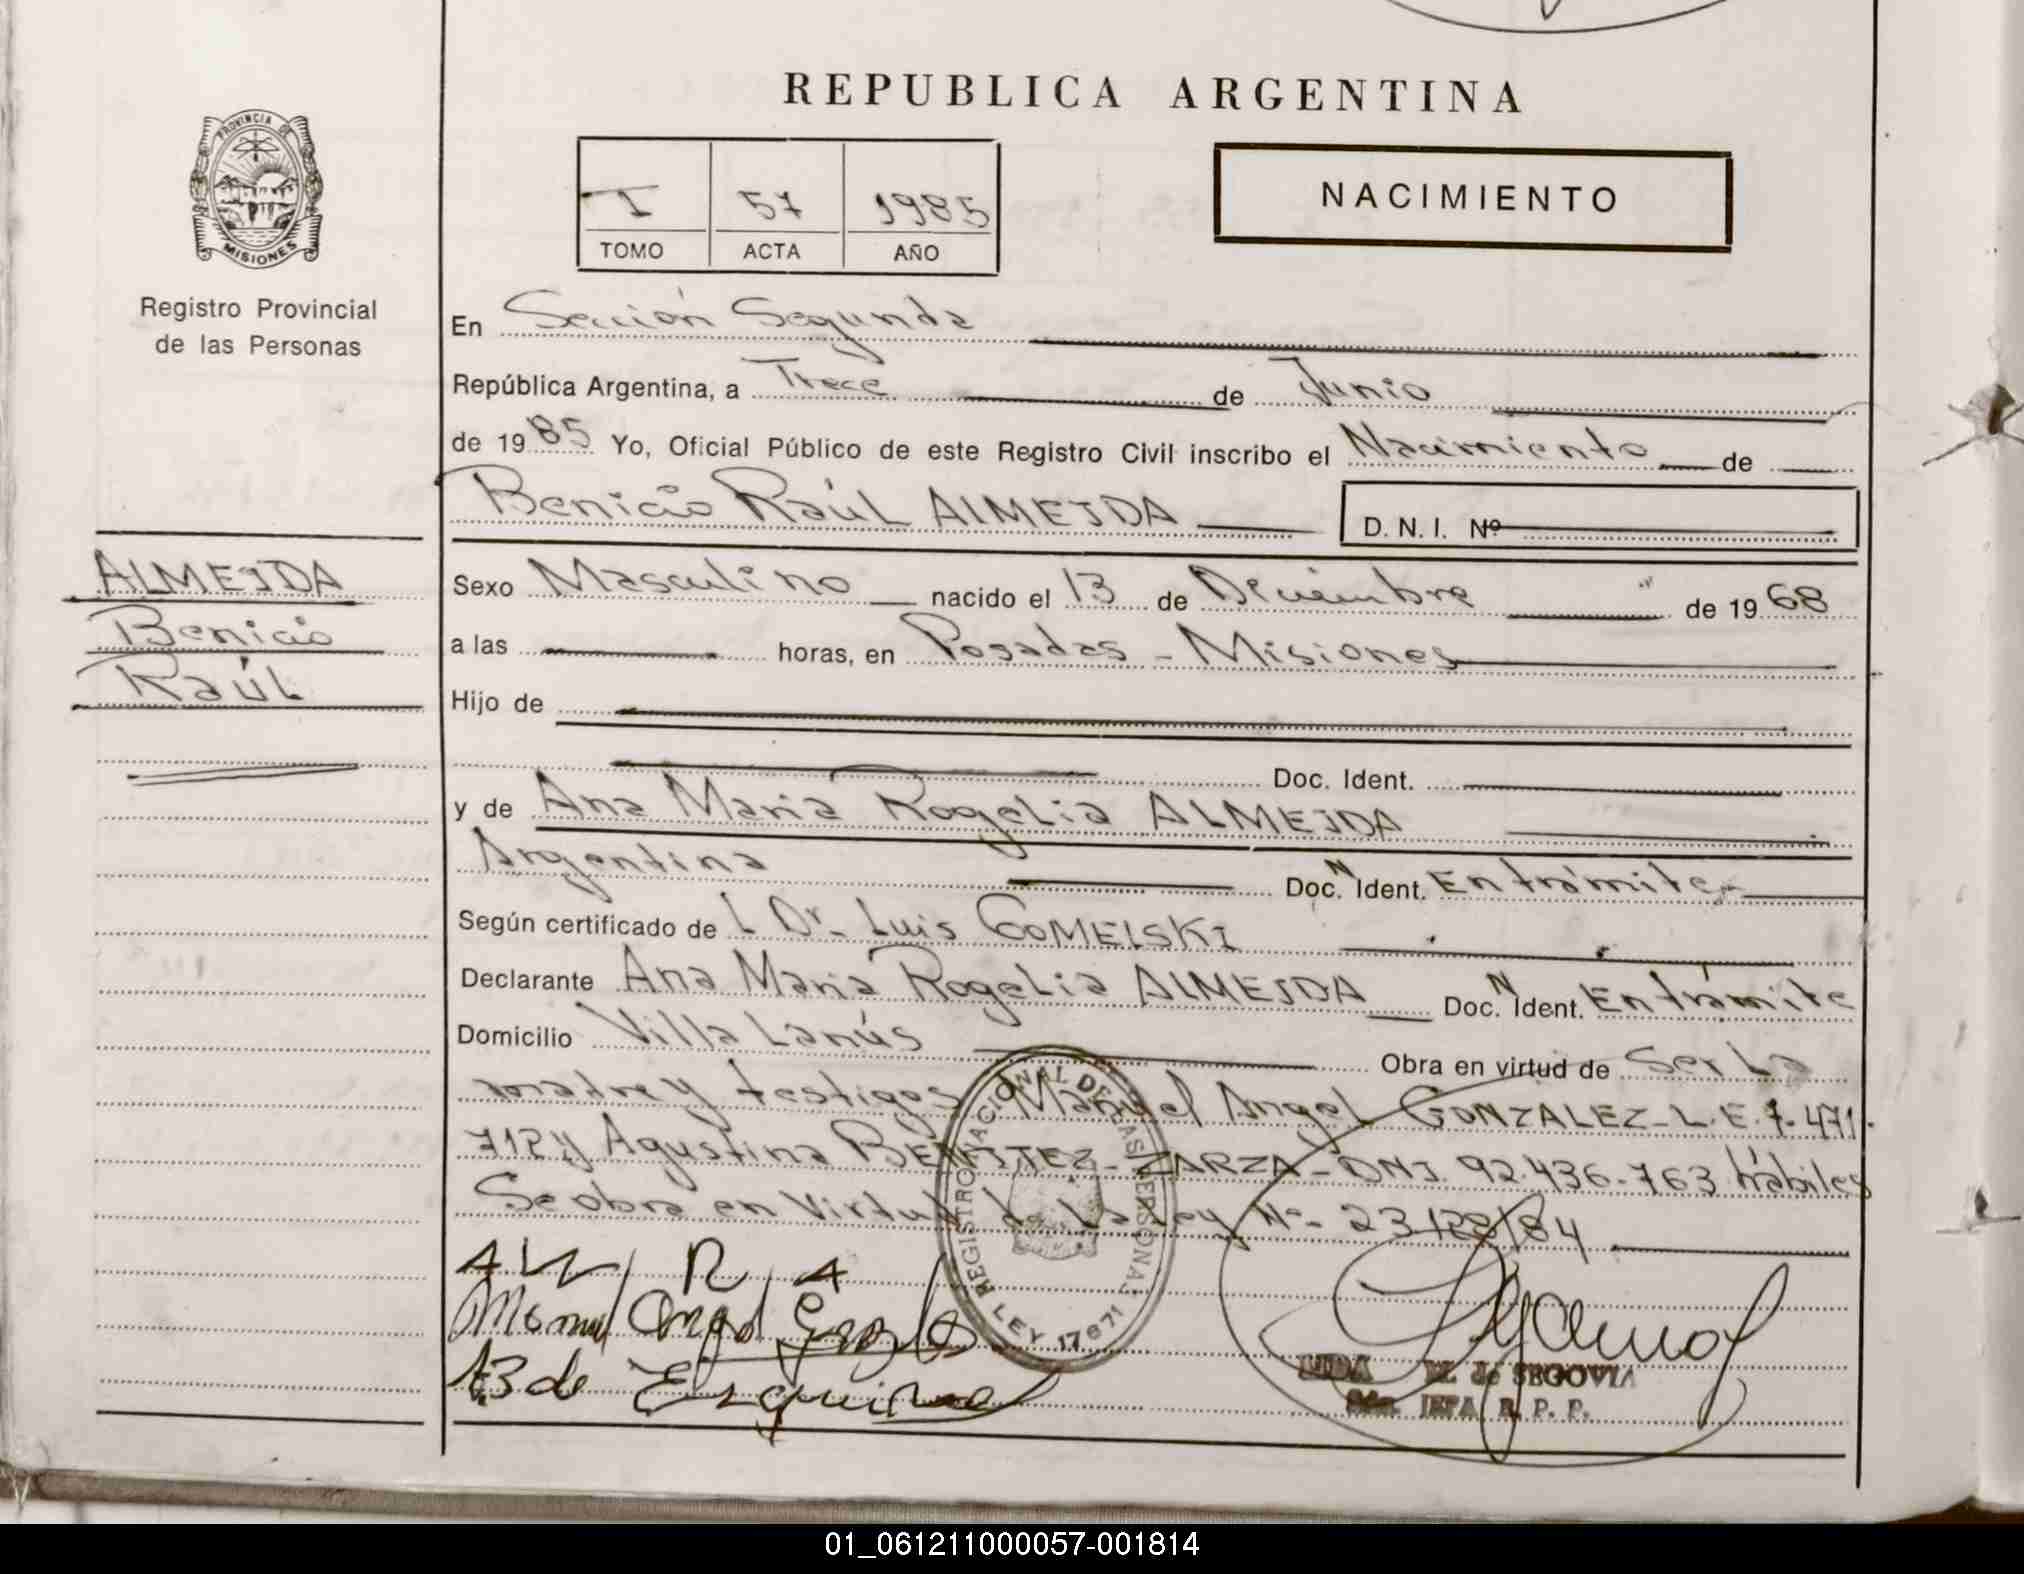 REPUBLICA ARGENTINA
PROVINCIA DE
MISIONES
Registro Provincial
de las Personas
I 57 1985
TOMO ACTA AÑO
NACIMIENTO
En Sección Segunda
República Argentina, a Trece de Junio
de 19 85 Yo, Oficial Público de este Registro Civil inscribo el Nacimiento de
Benicio Raúl ALMEIDA D.N.I. Nº
ALMEIDA
Benicio
Raúl
Sexo Masculino nacido el 13 de Diciembre de 19 68
a las horas, en Posadas - Misiones
Hijo de
Doc. Ident.
y de Ana Maria Rogelia ALMEIDA
Argentina Doc. N Ident. En trámite
Según certificado de L Dr. Luis GOMELSKI
Declarante Ana Maria Rogelia ALMEIDA Doc. N Ident. En trámite
Domicilio Villa Lanús Obra en virtud de Ser La
madre y testigos Manuel Angel GONZALEZ - L.E. 7.471.
712 y Agustina BENITEZ - ZARZA - DNI. 92.436.763 hábiles
Se obra en Virtud de La Ley Nº 23.128/84
REGISTRO NACIONAL DE LAS PERSONAS
LEY 17671
A M R A
Manuel Angel
A B de Esquivel
LIDA M. de SEGOVIA
JEFA R. P. P.
01_061211000057-001814